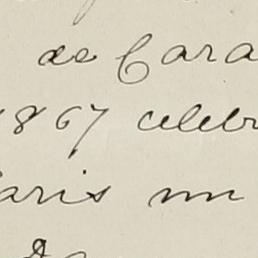 de Cara
1867 celebr
aris un